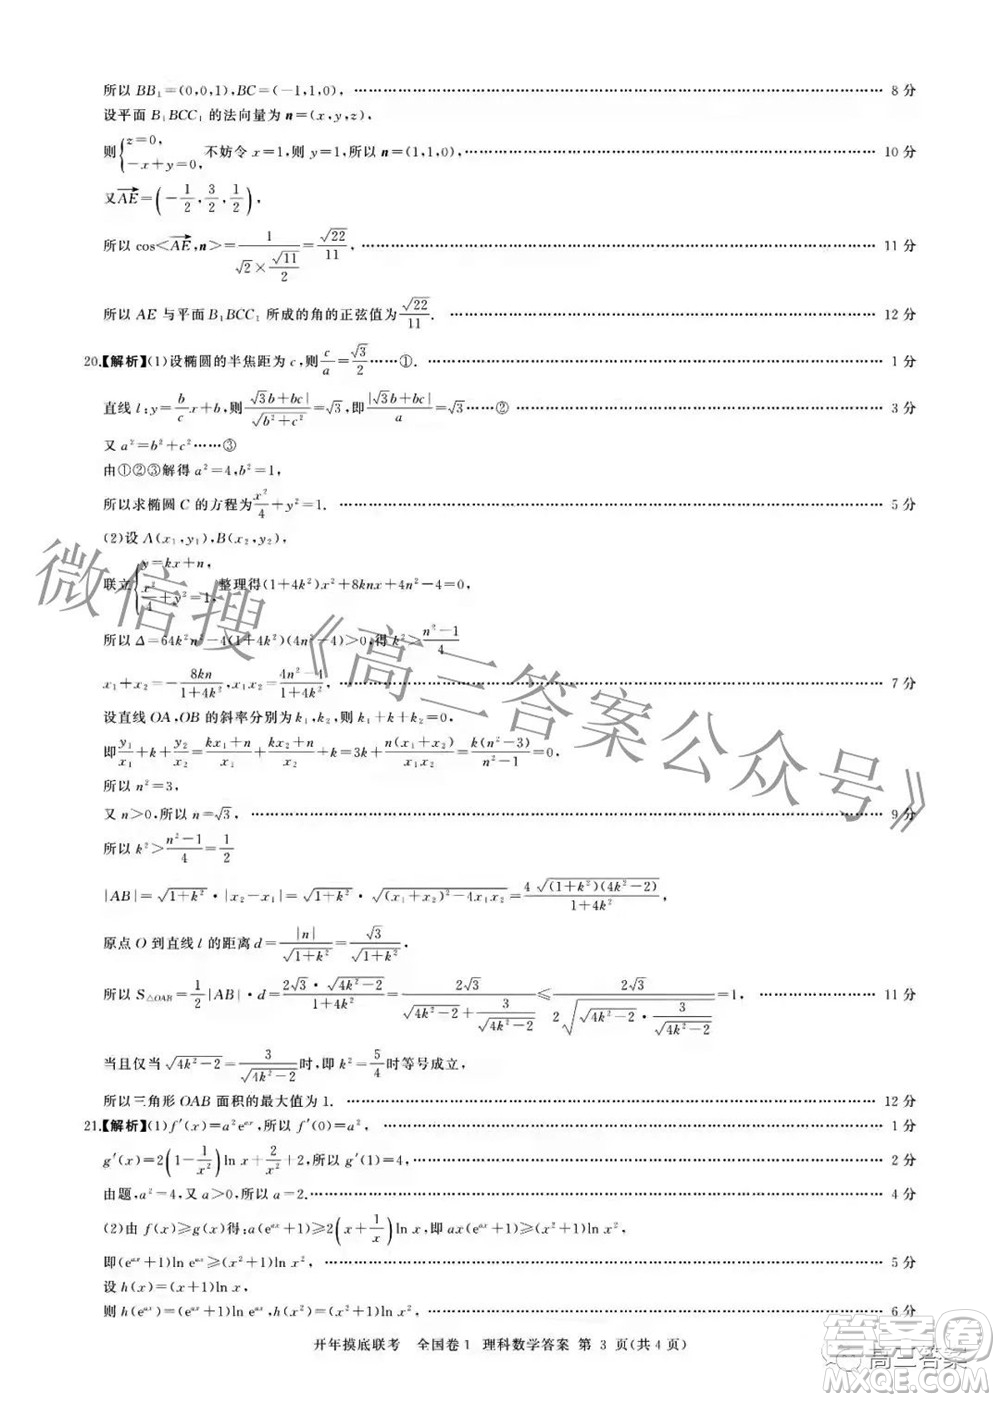 所以 BB₁=(0,0,1),BC=(−1,1,0), …… 8 分
设平面 B₁BCC₁ 的法向量为 n=(x,y,z),
则{z=0, −x+y=0, 不妨令 x=1,则 y=1,所以 n=(1,1,0), …… 10 分
又AE=(−1/2,3/2,1/2),
所以 cos<AE,n>=1/(√2×√11/2)=√22/11, …… 11 分
所以 AE 与平面 B₁BCC₁ 所成的角的正弦值为√22/11. …… 12 分
20.【解析】(1)设椭圆的半焦距为 c,则c/a=√3/2……①. …… 1 分
直线 l:y=b/c x+b,则|√3b+bc|/√(b²+c²)=√3,即|√3b+bc|/a=√3……② …… 3 分
又 a²=b²+c²……③
由①②③解得 a²=4,b²=1,
所以求椭圆 C 的方程为x²/4+y²=1. …… 5 分
(2)设 A(x₁,y₁),B(x₂,y₂),
联立{y=kx+n, x²/4+y²=1, 整理得(1+4k²)x²+8knx+4n²−4=0,
所以 Δ=64k²n²−4(1+4k²)(4n²−4)>0,得 k²>(n²−1)/4
x₁+x₂=−8kn/(1+4k²),x₁x₂=(4n²−4)/(1+4k²) …… 7 分
设直线 OA,OB 的斜率分别为 k₁,k₂,则 k₁+k+k₂=0,
即y₁/x₁+k+y₂/x₂=(kx₁+n)/x₁+(kx₂+n)/x₂+k=3k+n(x₁+x₂)/x₁x₂=k(n²−3)/(n²−1)=0,
所以 n²=3,
又 n>0,所以 n=√3, …… 9 分
所以 k²>(n²−1)/4=1/2
|AB|=√(1+k²)·|x₂−x₁|=√(1+k²)·√((x₁+x₂)²−4x₁x₂)=4√((1+k²)(4k²−2))/(1+4k²),
原点 O 到直线 l 的距离 d=|n|/√(1+k²)=√3/√(1+k²),
所以 S△OAB=1/2|AB|·d=2√3·√(4k²−2)/(1+4k²)=2√3/(√(4k²−2)+3/√(4k²−2))≤2√3/(2√(√(4k²−2)·3/√(4k²−2)))=1, …… 11 分
当且仅当√(4k²−2)=3/√(4k²−2)时,即 k²=5/4时等号成立,
所以三角形 OAB 面积的最大值为 1. …… 12 分
21.【解析】(1)f′(x)=a²eᵃˣ,所以 f′(0)=a², …… 1 分
g′(x)=2(1−1/x²)ln x+2/x²+2,所以 g′(1)=4, …… 2 分
由题,a²=4,又 a>0,所以 a=2. …… 4 分
(2)由 f(x)≥g(x)得:a(eᵃˣ+1)≥2(x+1/x)ln x,即 ax(eᵃˣ+1)≥(x²+1)ln x²,
即(eᵃˣ+1)ln eᵃˣ≥(x²+1)ln x², …… 5 分
设 h(x)=(x+1)ln x,
则 h(eᵃˣ)=(eᵃˣ+1)ln eᵃˣ,h(x²)=(x²+1)ln x², …… 6 分
开年摸底联考 全国卷 1 理科数学答案 第 3 页(共 4 页)
微信搜《高三答案公众号》
高三答案
答案圈
MXQE.COM